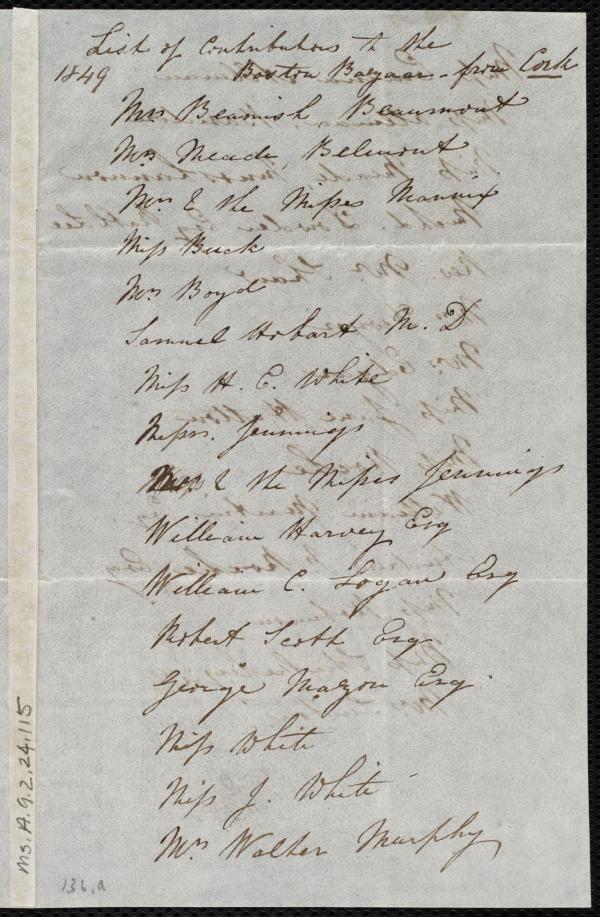 List of Contributors to the
1849 Boston Bazaar - from Cork
Mrs Beamish Beaumont
Mrs Meade, Belmont
Mrs & the Misses Mannix
Miss Buck
Mrs Boyd
Samuel Hobart M. D
Miss H. E. White
Messrs. Jennings
Mrs & the Misses Jennings
William Harvey Esq
William C. Logan Esq
Robert Scott Esq
George Mazon Esq.
Miss White
Miss J. White
Mrs Walter Murphy
Ms. A. 9. 2. 24, 115
136, a